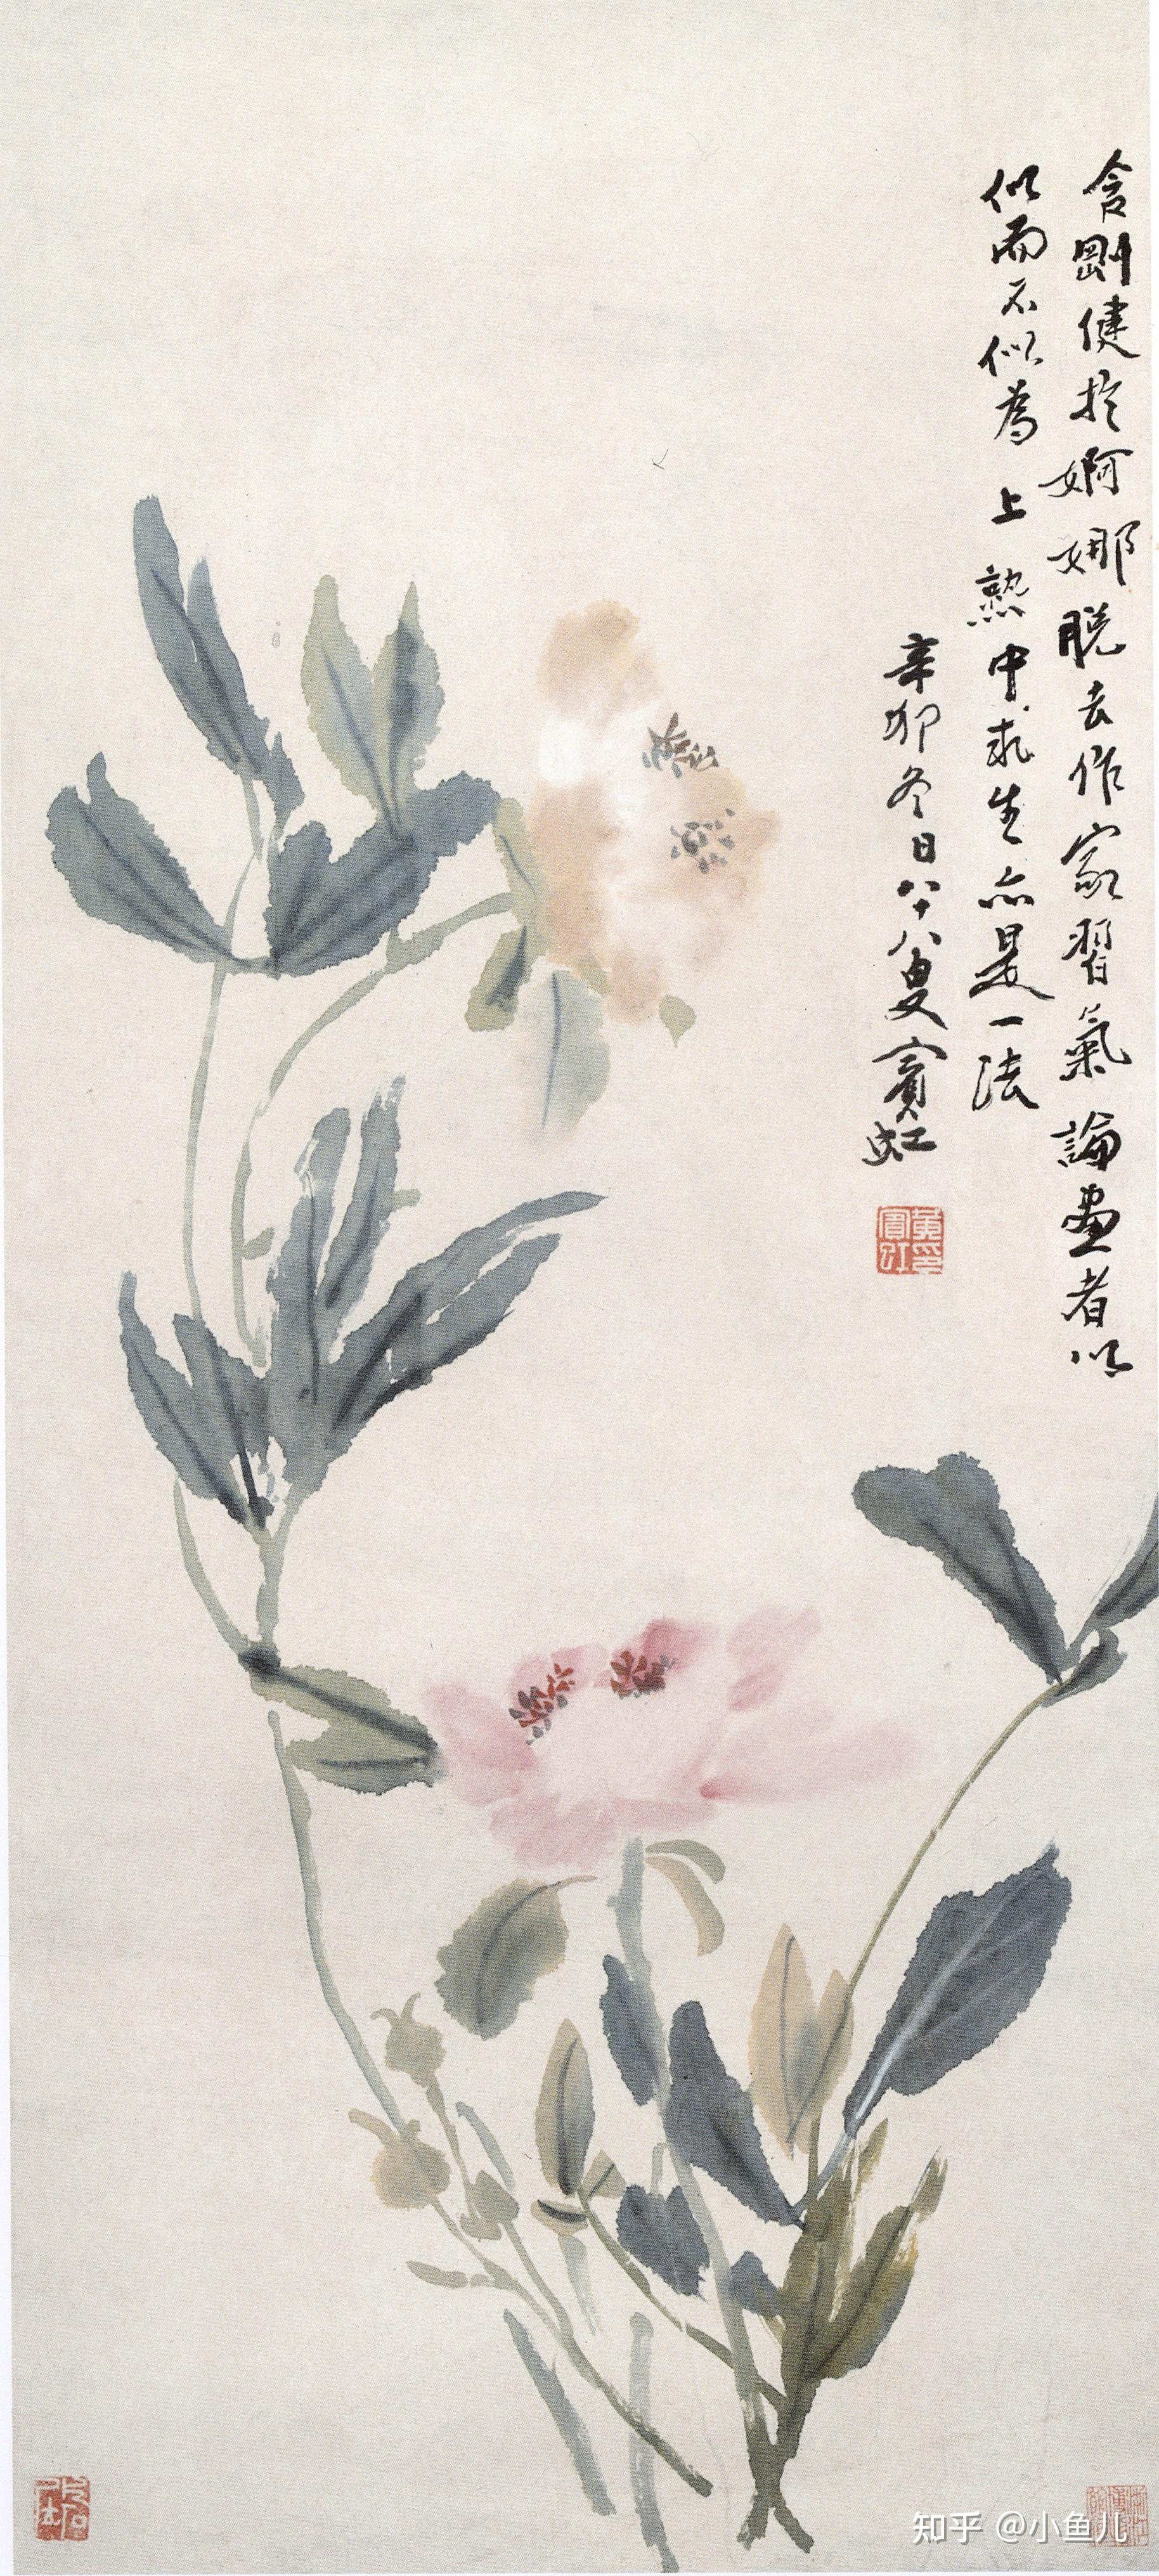 含剛健於婀娜脫去作家習氣論畫者以
似而不似為上熟中求生亦是一法
辛卯冬日八十八叟賓虹
黃賓虹印
知乎 @小鱼儿